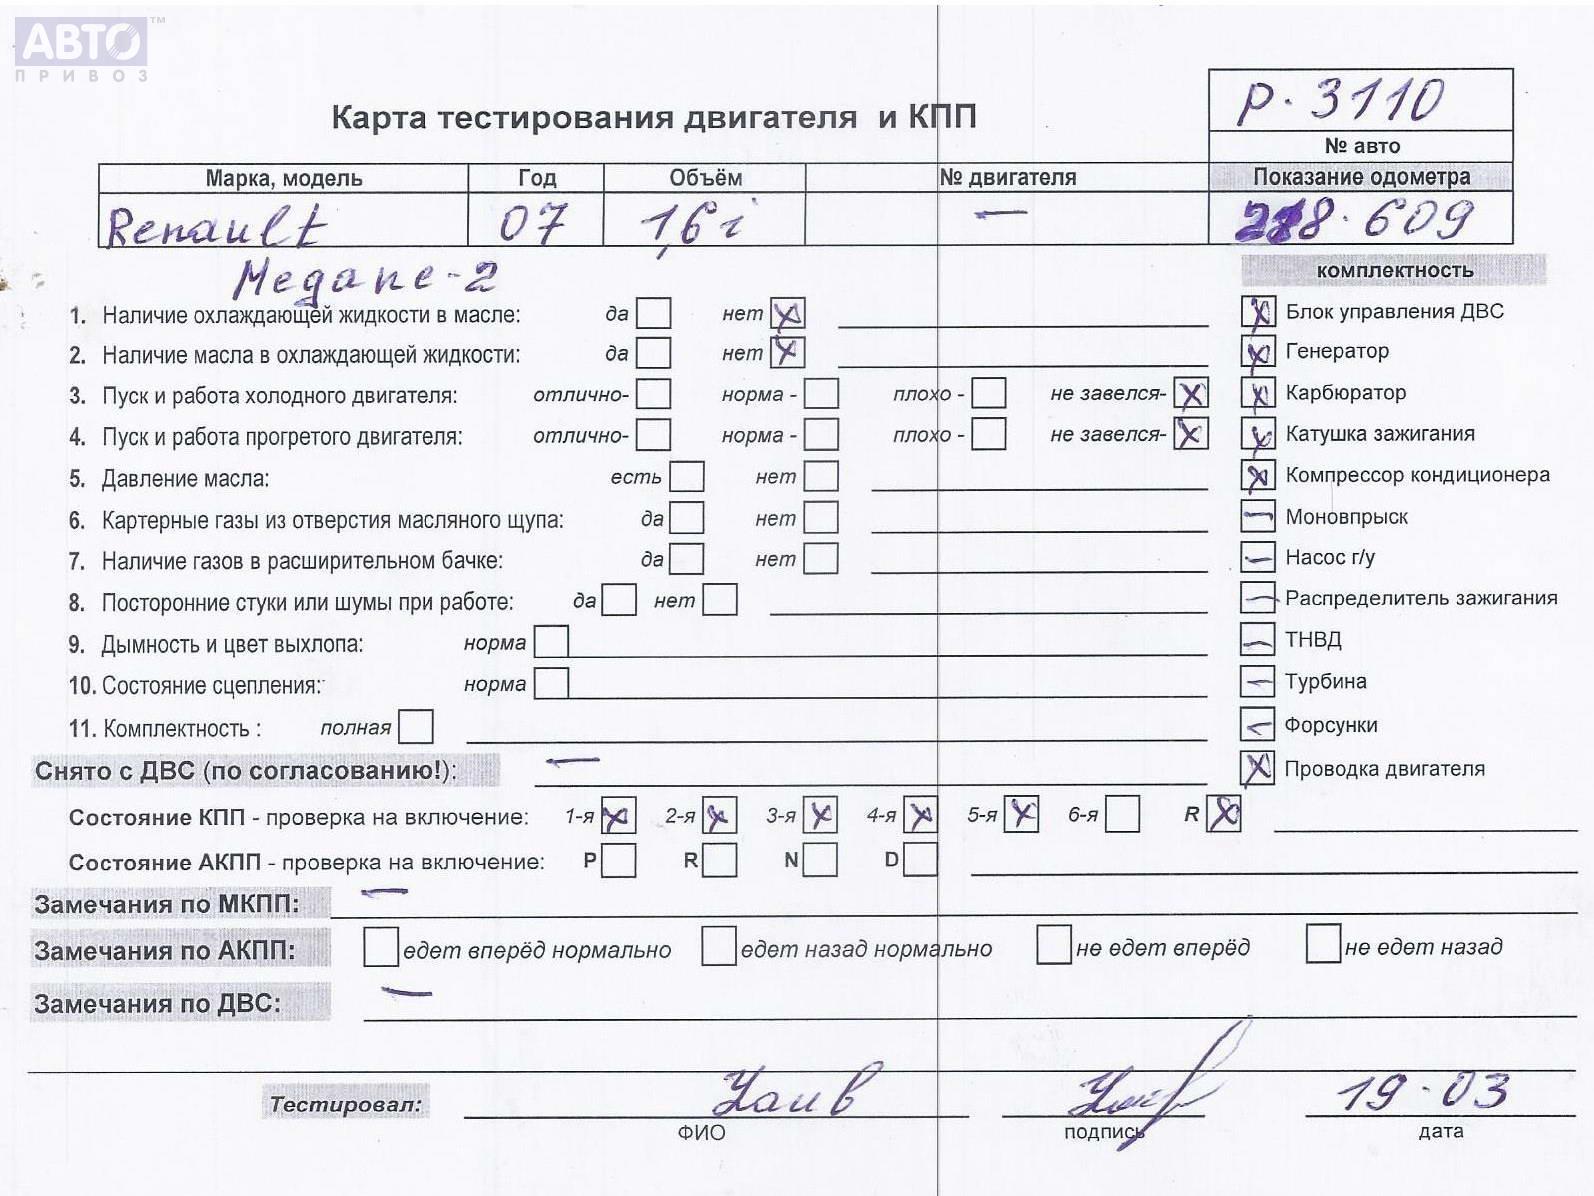 АВТО™
ПРИВОЗ
Р-3110
Карта тестирования двигателя и КПП
№ авто
Марка, модель Год Объём № двигателя Показание одометра
Renault 07 1,6 i — 218.609
Медапе-2
комплектность
1. Наличие охлаждающей жидкости в масле: да нет X
Блок управления ДВС X
2. Наличие масла в охлаждающей жидкости: да нет X
Генератор X
3. Пуск и работа холодного двигателя: отлично- норма - плохо - не завелся- X
Карбюратор X
4. Пуск и работа прогретого двигателя: отлично- норма - плохо - не завелся- X
Катушка зажигания X
5. Давление масла: есть нет
Компрессор кондиционера X
6. Картерные газы из отверстия масляного щупа: да нет
Моновпрыск —
7. Наличие газов в расширительном бачке: да нет
Насос г/у —
8. Посторонние стуки или шумы при работе: да нет
Распределитель зажигания —
9. Дымность и цвет выхлопа: норма
ТНВД —
10. Состояние сцепления: норма
Турбина —
11. Комплектность : полная
Форсунки —
Снято с ДВС (по согласованию!): —
Проводка двигателя X
Состояние КПП - проверка на включение: 1-я X 2-я X 3-я X 4-я X 5-я X 6-я R X
Состояние АКПП - проверка на включение: P R N D
Замечания по МКПП: —
Замечания по АКПП: едет вперёд нормально едет назад нормально не едет вперёд не едет назад
Замечания по ДВС: —
Тестировал: 19-03
ФИО подпись дата